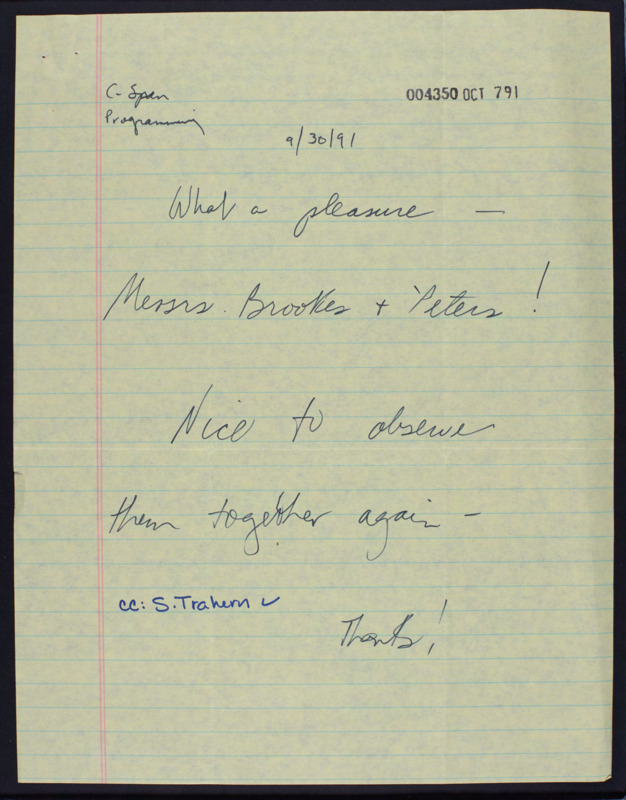 C-Span
Programming
004350 OCT 791
9/30/91
What a pleasure —
Messrs. Brookes + Peters!
Nice to observe
them together again –
cc: S. Trahern ✓
Thanks!